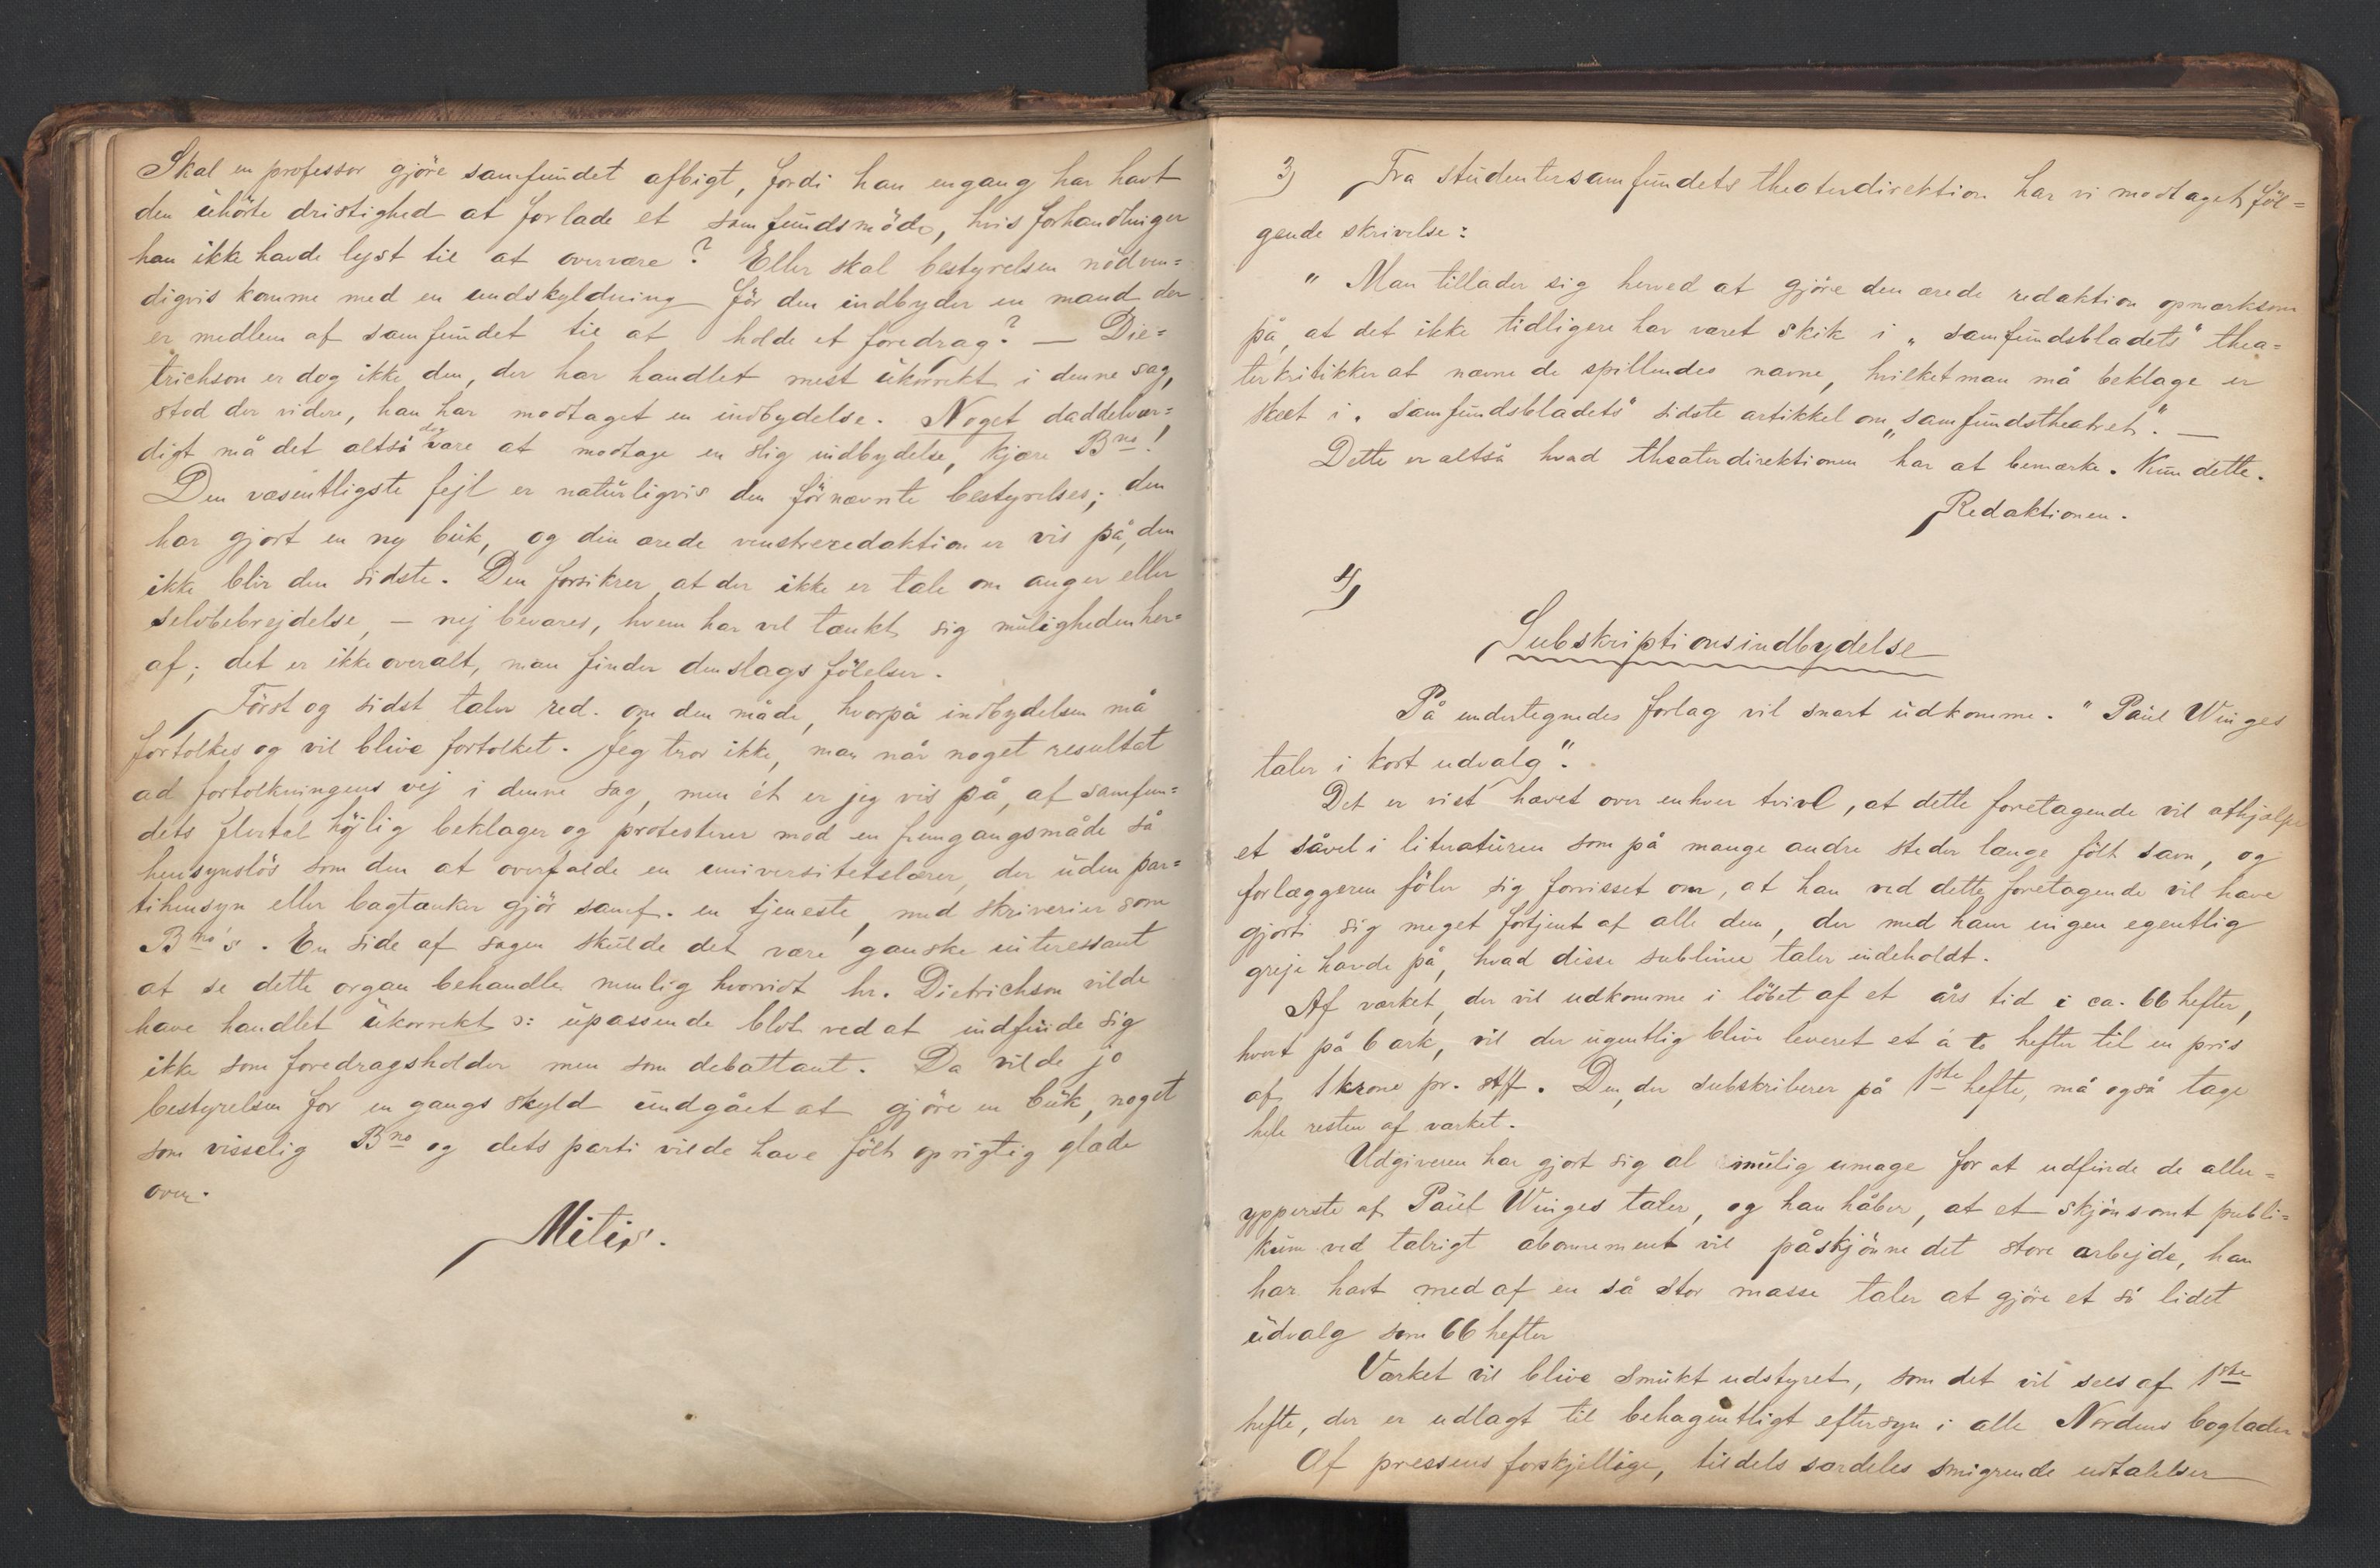 Skal en professor gjöre samfundet afbigt, fordi han engang har havt
den uhörte dristighed at forlade et samfundsmöde, hvis forhandlinger
han ikke havde lyst til at overvære? Eller skal bestyrelsen nödven=
digvis komme med en undskyldning för den indbyder en mand der
er medlem af samfundet til at holde et foredrag? — Die=
trichson er dog ikke den, der har handlet mest ukorrekt i denne sag,
stod der videre, han har modtaget en indbydelse. Noget daddelvær=
digt må det altså dog være at modtage en slig indbydelse, kjære Bno!
Den væsentligste fejl er naturligvis den förnævnte bestyrelses; den
har gjort en ny buk, og din ærede venstreredaktion er vis på, den
ikke blir den sidste. Den forsikrer, at der ikke er tale om anger eller
selvbebrejdelse, — nej bevares, hvem har vel tænkt sig muligheden her=
af; det er ikke overalt, man finder denslags fölelser.
Först og sidst taler red. om den måde, hvorpå indbydelsen må
fortolkes og vil blive fortolket. Jeg tror ikke, man når noget resultat
ad fortolkningens vej i denne sag, men ét er jeg vis på, at samfun=
dets flertal höjlig beklager og protesterer mod en fremgangsmåde så
hensynslös som den at overfalde en universitetslærer, der uden par=
tihensyn eller bagtanker gjör samf. en tjeneste, med skriverier som
Bno's. En side af sagen skulde det være ganske interessant
at se dette organ behandle, nemlig hvorvidt hr. Dietrichson vilde
have handlet ukorrekt ɔ: upassende blot ved at indfinde sig
ikke som foredragsholder men som debattant. Da vilde jo
bestyrelsen for en gangs skyld undgået at gjöre en buk, noget
som visselig Bno og dets parti vilde have fölt oprigtig glæde
over.
Mitis.
3) Fra studentersamfundets theaterdirektion har vi modtaget föl=
gende skrivelse:
" Man tillader sig herved at gjöre den ærede redaktion opmærksom
på, at det ikke tidligere har været skik i "samfundsbladets" thea=
terkritikker at nævne de spillendes navne, hvilket man må beklage er
skeet i "samfundsbladets" sidste artikkel om "samfundstheatret". —
Dette er altså hvad theaterdirektionen har at bemærke. Kun dette.
Redaktionen.
4)
Subskriptionsindbydelse
På undertegnedes forlag vil snart udkomme. "Paul Winges
taler i kort udvalg".
Det er vist hævet over enhver tvivl, at dette foretagende vil afhjælpe
et såvel i literaturen som på mange andre steder længe fölt savn, og
forlæggeren föler sig forvisset om, at han ved dette foretagende vil have
gjort sig meget fortjent af alle dem, der med ham ingen egentlig
greje havde på, hvad disse sublime taler indeholdt.
Af værket, der vil udkomme i löbet af et års tid i ca. 66 hefter,
hvert på 6 ark, vil der ugentlig blive leveret et á to hefter til en pris
af 1 krone pr. Hft. Den, der subskriberer på 1ste hefte, må også tage
hele resten af værket.
Udgiveren har gjort sig al mulig umage for at udfinde de aller=
ypperste af Paul Winges taler, og han håber, at et skjönsomt publi=
kum ved talrigt abonnement vil påskjönne det store arbejde, han
har havt med af en så stor masse taler at gjöre et så lidet
udvalg som 66 hefter
Værket vil blive smukt udstyret, som det vil sees af 1ste
hefte, der er udlagt til behageligt eftersyn i alle Nordens boglader
Af pressens forskjellige, tildels særdeles smigrende udtalelser